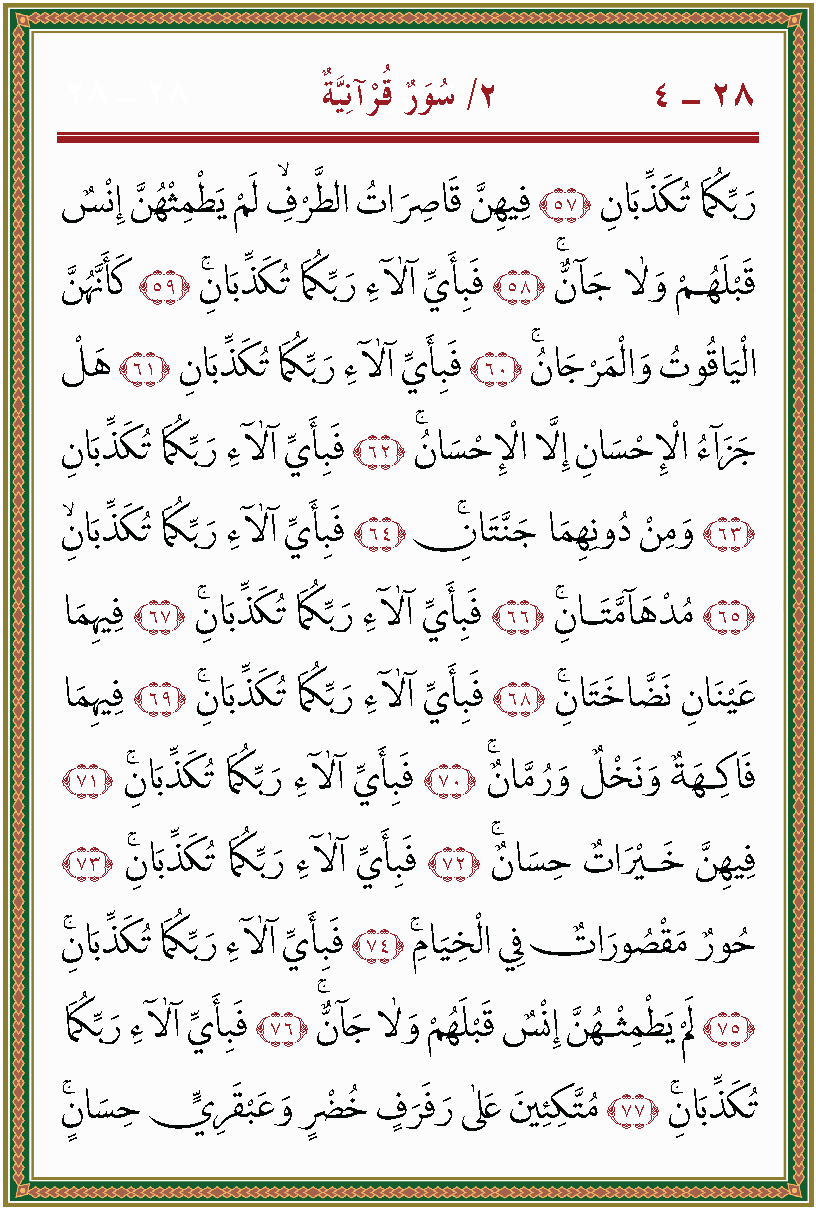 ٢٨ - ٤
٢/ سُوَرٌ قُرْآنِيَّةٌ
٢٨ - ٢٨
رَبِّكُمَا تُكَذِّبَانِ ﴿٥٧﴾ فِيهِنَّ قَاصِرَاتُ الطَّرْفِۙ لَمْ يَطْمِثْهُنَّ إِنْسٌ
قَبْلَهُمْ وَلَا جَآنٌّۚ ﴿٥٨﴾ فَبِأَيِّ آلَآءِ رَبِّكُمَا تُكَذِّبَانِۚ ﴿٥٩﴾ كَأَنَّهُنَّ
الْيَاقُوتُ وَالْمَرْجَانُۚ ﴿٦٠﴾ فَبِأَيِّ آلَآءِ رَبِّكُمَا تُكَذِّبَانِ ﴿٦١﴾ هَلْ
جَزَآءُ الْإِحْسَانِ إِلَّا الْإِحْسَانُۚ ﴿٦٢﴾ فَبِأَيِّ آلَآءِ رَبِّكُمَا تُكَذِّبَانِ
﴿٦٣﴾ وَمِنْ دُونِهِمَا جَنَّتَانِۚ ﴿٦٤﴾ فَبِأَيِّ آلَآءِ رَبِّكُمَا تُكَذِّبَانِۙ
﴿٦٥﴾ مُدْهَآمَّتَانِۚ ﴿٦٦﴾ فَبِأَيِّ آلَآءِ رَبِّكُمَا تُكَذِّبَانِۚ ﴿٦٧﴾ فِيهِمَا
عَيْنَانِ نَضَّاخَتَانِۚ ﴿٦٨﴾ فَبِأَيِّ آلَآءِ رَبِّكُمَا تُكَذِّبَانِۚ ﴿٦٩﴾ فِيهِمَا
فَاكِهَةٌ وَنَخْلٌ وَرُمَّانٌۚ ﴿٧٠﴾ فَبِأَيِّ آلَآءِ رَبِّكُمَا تُكَذِّبَانِۚ ﴿٧١﴾
فِيهِنَّ خَيْرَاتٌ حِسَانٌۚ ﴿٧٢﴾ فَبِأَيِّ آلَآءِ رَبِّكُمَا تُكَذِّبَانِۚ ﴿٧٣﴾
حُورٌ مَقْصُورَاتٌ فِي الْخِيَامِۚ ﴿٧٤﴾ فَبِأَيِّ آلَآءِ رَبِّكُمَا تُكَذِّبَانِۚ
﴿٧٥﴾ لَمْ يَطْمِثْهُنَّ إِنْسٌ قَبْلَهُمْ وَلَا جَآنٌّۚ ﴿٧٦﴾ فَبِأَيِّ آلَآءِ رَبِّكُمَا
تُكَذِّبَانِۚ ﴿٧٧﴾ مُتَّكِئِينَ عَلَى رَفْرَفٍ خُضْرٍ وَعَبْقَرِيٍّ حِسَانٍۚ